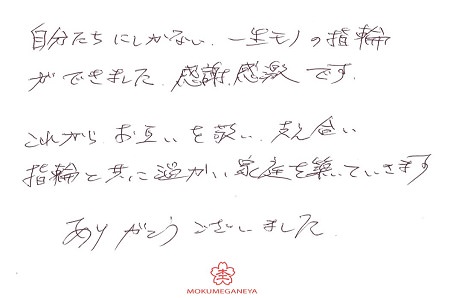 自分たちにしかない、一生モノの指輪
ができました。感謝、感激です。
これから お互いを敬い、支え合い
指輪と共に温かい家庭を築いていきます
ありがとうございました。
MOKUMEGANEYA